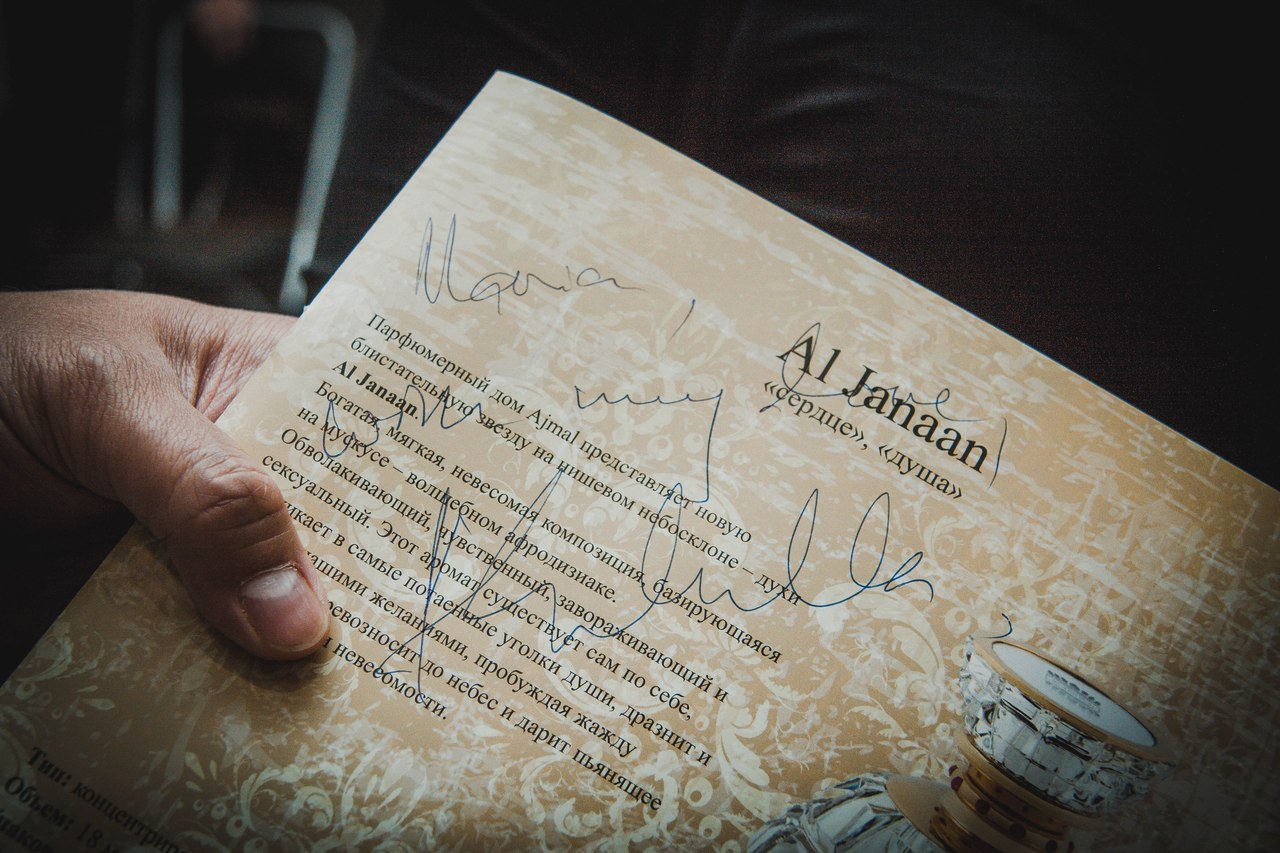 Maria,
with my love,
Al Janaan
«сердце», «душа»
Парфюмерный дом Ajmal представляет новую
блистательную звезду на нишевом небосклоне – духи
Al Janaan.
Богатая, мягкая, невесомая композиция, базирующаяся
на мускусе – волшебном афродизиаке.
Обволакивающий, чувственный, завораживающий и
сексуальный. Этот аромат существует сам по себе,
икает в самые потаенные уголки души, дразнит и
ашими желаниями, пробуждая жажду
ревозносит до небес и дарит пьянящее
невесомости.
Тип: концентриро
Объем: 18 м